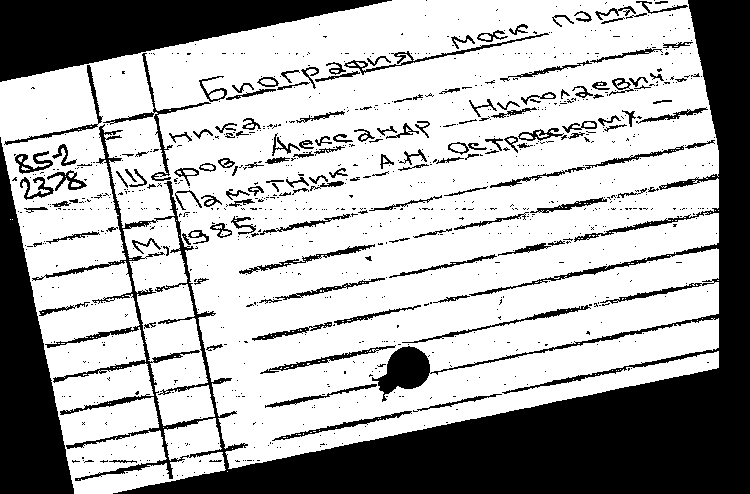 Биография моск. памят-
= ника
85-2
2378
Шефов, Александр Николаевич
Памятник А.Н. Островскому. –
М, 1985